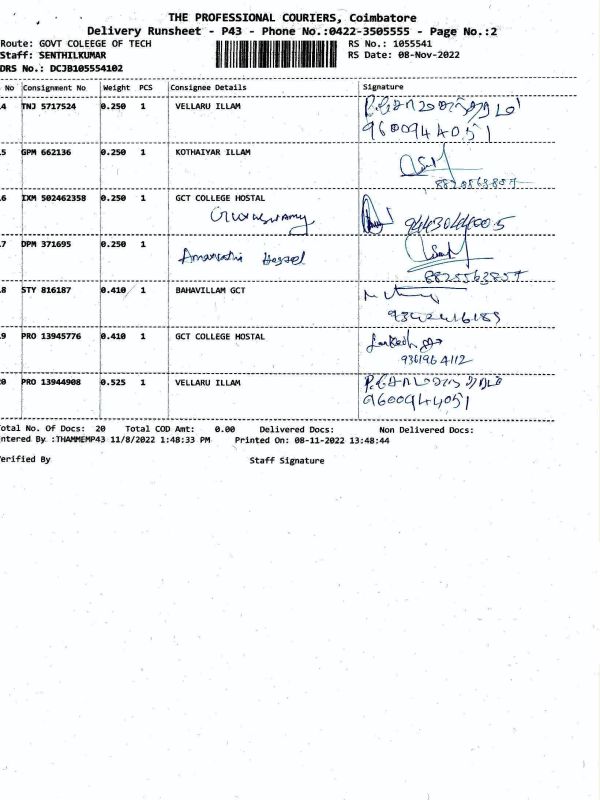 THE PROFESSIONAL COURIERS, Coimbatore
Delivery Runsheet - P43 - Phone No.:0422-3505555 - Page No.:2
Route: GOVT COLEEGE OF TECH RS No.: 1055541
Staff: SENTHILKUMAR RS Date: 08-Nov-2022
DRS No.: DCJB105554102
No Consignment No Weight PCS Consignee Details Signature
4 TNJ 5717524 0.250 1 VELLARU ILLAM
9600944051
5 GPM 662136 0.250 1 KOTHAIYAR ILLAM
8825563857
6 IXM 502462358 0.250 1 GCT COLLEGE HOSTAL
7 DPM 371695 0.250 1
8825563857
8 STY 816187 0.410 1 BAHAVILLAM GCT
9 PRO 13945776 0.410 1 GCT COLLEGE HOSTAL
9361964112
0 PRO 13944908 0.525 1 VELLARU ILLAM
9600944051
otal No. Of Docs: 20 Total COD Amt: 0.00 Delivered Docs: Non Delivered Docs:
ntered By :THAMMEMP43 11/8/2022 1:48:33 PM Printed On: 08-11-2022 13:48:44
erified By Staff Signature